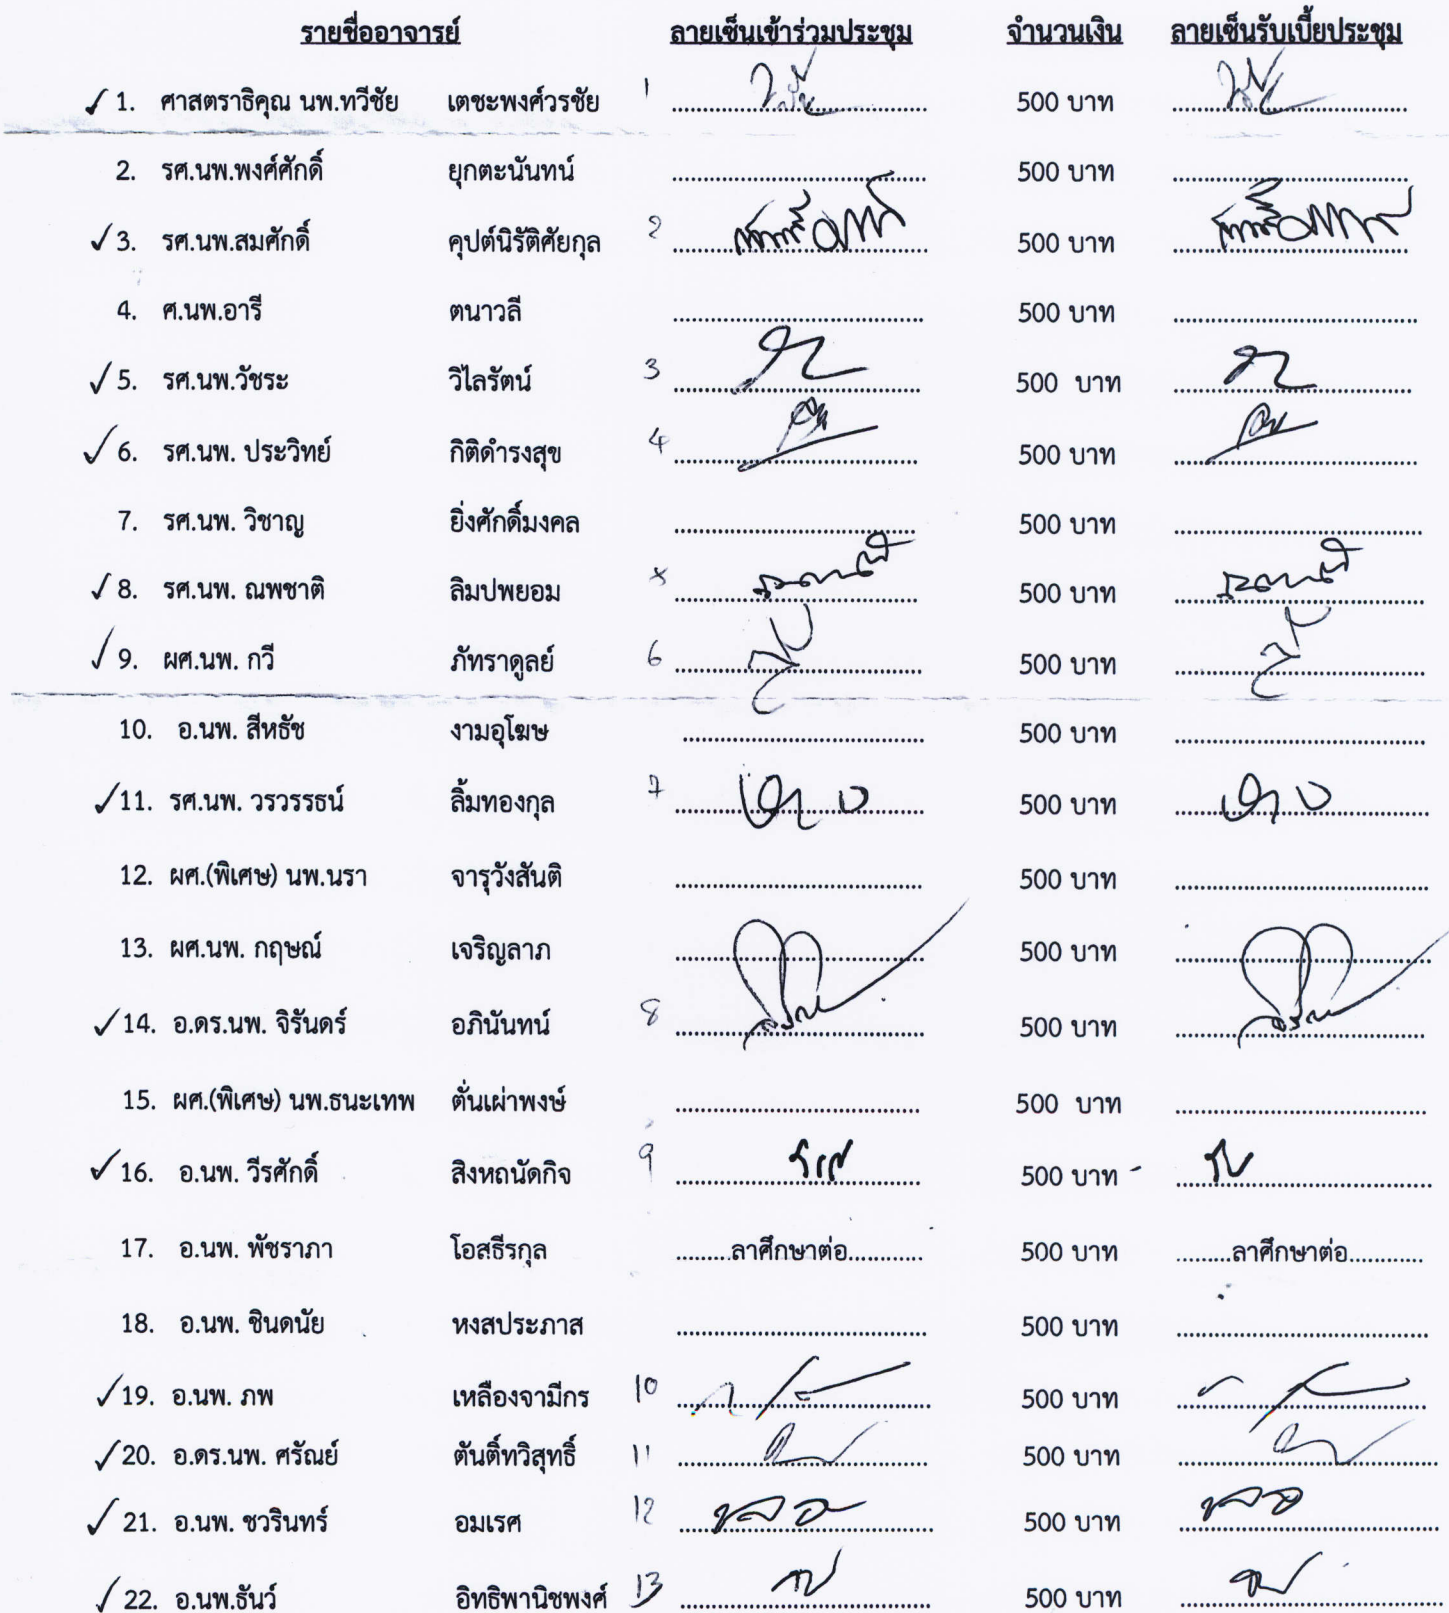 รายชื่ออาจารย์ ลายเซ็นเข้าร่วมประชุม จำนวนเงิน ลายเซ็นรับเบี้ยประชุม
✓ 1. ศาสตราธิคุณ นพ.ทวีชัย เตชะพงศ์วรชัย 1 500 บาท
2. รศ.นพ.พงศ์ศักดิ์ ยุกตะนันทน์ 500 บาท
✓ 3. รศ.นพ.สมศักดิ์ คุปต์นิรัติศัยกุล 2 500 บาท
4. ศ.นพ.อารี ตนาวลี 500 บาท
✓ 5. รศ.นพ.วัชระ วิไลรัตน์ 3 500 บาท
✓ 6. รศ.นพ. ประวิทย์ กิติดำรงสุข 4 500 บาท
7. รศ.นพ. วิชาญ ยิ่งศักดิ์มงคล 500 บาท
✓ 8. รศ.นพ. ณพชาติ ลิมปพยอม 500 บาท
✓ 9. ผศ.นพ. กวี ภัทราดูลย์ 6 500 บาท
10. อ.นพ. สีหธัช งามอุโฆษ 500 บาท
✓ 11. รศ.นพ. วรวรรธน์ ลิ้มทองกุล 7 500 บาท
12. ผศ.(พิเศษ) นพ.นรา จารุวังสันติ 500 บาท
13. ผศ.นพ. กฤษณ์ เจริญลาภ 500 บาท
✓ 14. อ.ดร.นพ. จิรันดร์ อภินันทน์ 8 500 บาท
15. ผศ.(พิเศษ) นพ.ธนะเทพ ตั่นเผ่าพงษ์ 500 บาท
✓ 16. อ.นพ. วีรศักดิ์ สิงหถนัดกิจ 9 500 บาท
17. อ.นพ. พัชราภา โอสธีรกุล ลาศึกษาต่อ 500 บาท ลาศึกษาต่อ
18. อ.นพ. ชินดนัย หงสประภาส 500 บาท
✓ 19. อ.นพ. ภพ เหลืองจามีกร 10 500 บาท
✓ 20. อ.ดร.นพ. ศรัณย์ ตันติ์ทวิสุทธิ์ 11 500 บาท
✓ 21. อ.นพ. ชวรินทร์ อมเรศ 12 500 บาท
✓ 22. อ.นพ.ธันว์ อิทธิพานิชพงศ์ 13 500 บาท